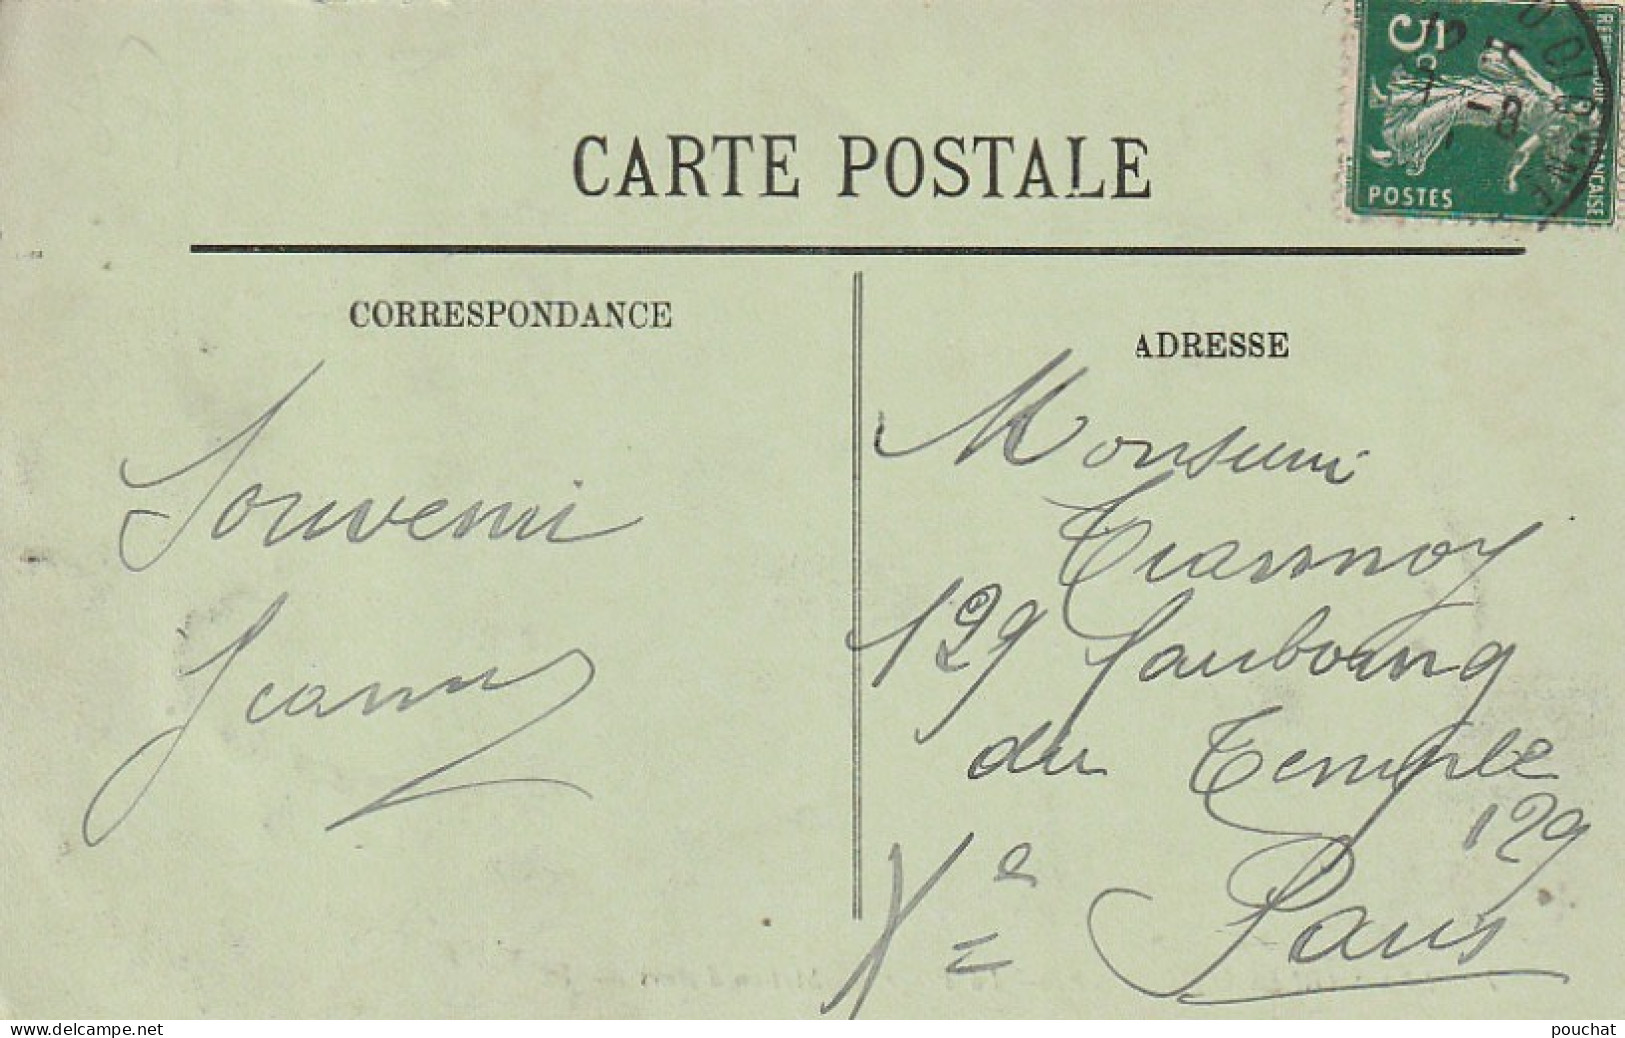 CARTE POSTALE
5c
POSTES
CORRESPONDANCE
Souvenir
Jeanne
ADRESSE
Monsieur
129 faubourg
du Temple
129
Xe
Paris
www.delcampe.net
pouchat